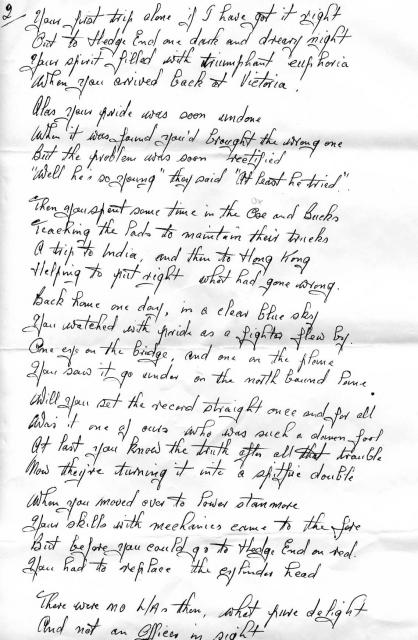 2/
Your first trip alone if I have got it right
Out to Hedge End one dark and dreary night
Your spirit filled with triumphant euphoria
When you arrived back at Victoria.
Alas your pride was soon undone
When it was found you'd brought the wrong one
But the problem was soon rectified
"Well he's so young" they said "At least he tried".
Then you spent some time in the Ox and Bucks
Teaching the Lads to maintain their trucks
A trip to India, and then to Hong Kong
Helping to put right what had gone wrong.
Back home one day, in a clear blue sky
You watched with pride as a fighter flew by.
One eye on the bridge, and one on the plane
You saw it go under on the north bound lane.
Will you set the record straight once and for all
Was it one of ours who was such a damn fool
At last you know the truth after all that trouble
Now they're turning it into a spitfire double
When you moved over to Power Stanmore
Your skills with mechanics came to the fore
But before you could go to Hedge End on red.
You had to replace the cylinder head
There were no L/As then, what pure delight
And not an Officer in sight